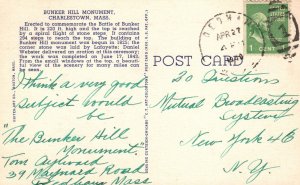 BUNKER HILL MONUMENT,
CHARLESTOWN, MASS.
Erected to commemorate the Battle of Bunker
Hill. It is 220 ft. high and the top is reached
by a spiral flight of stone steps. It contains
294 steps to reach the top. The building of
Bunker Hill monument was begun in 1825; the
corner stone was laid by Lafayette; Daniel
Webster delivered an oration at this ceremony, and
the work was completed on June 17, 1843.
From the small windows at the top, a beautiful
view of the scenery for many miles can
be had.
POST CARD
APR 27
I think a very good
subject would be
"The Bunker Hill
Monument."
Tom Aylward
39 Maynard Road
Dedham Mass
20 Questions
Mutual Broadcasting
System
New York 46
N.Y.